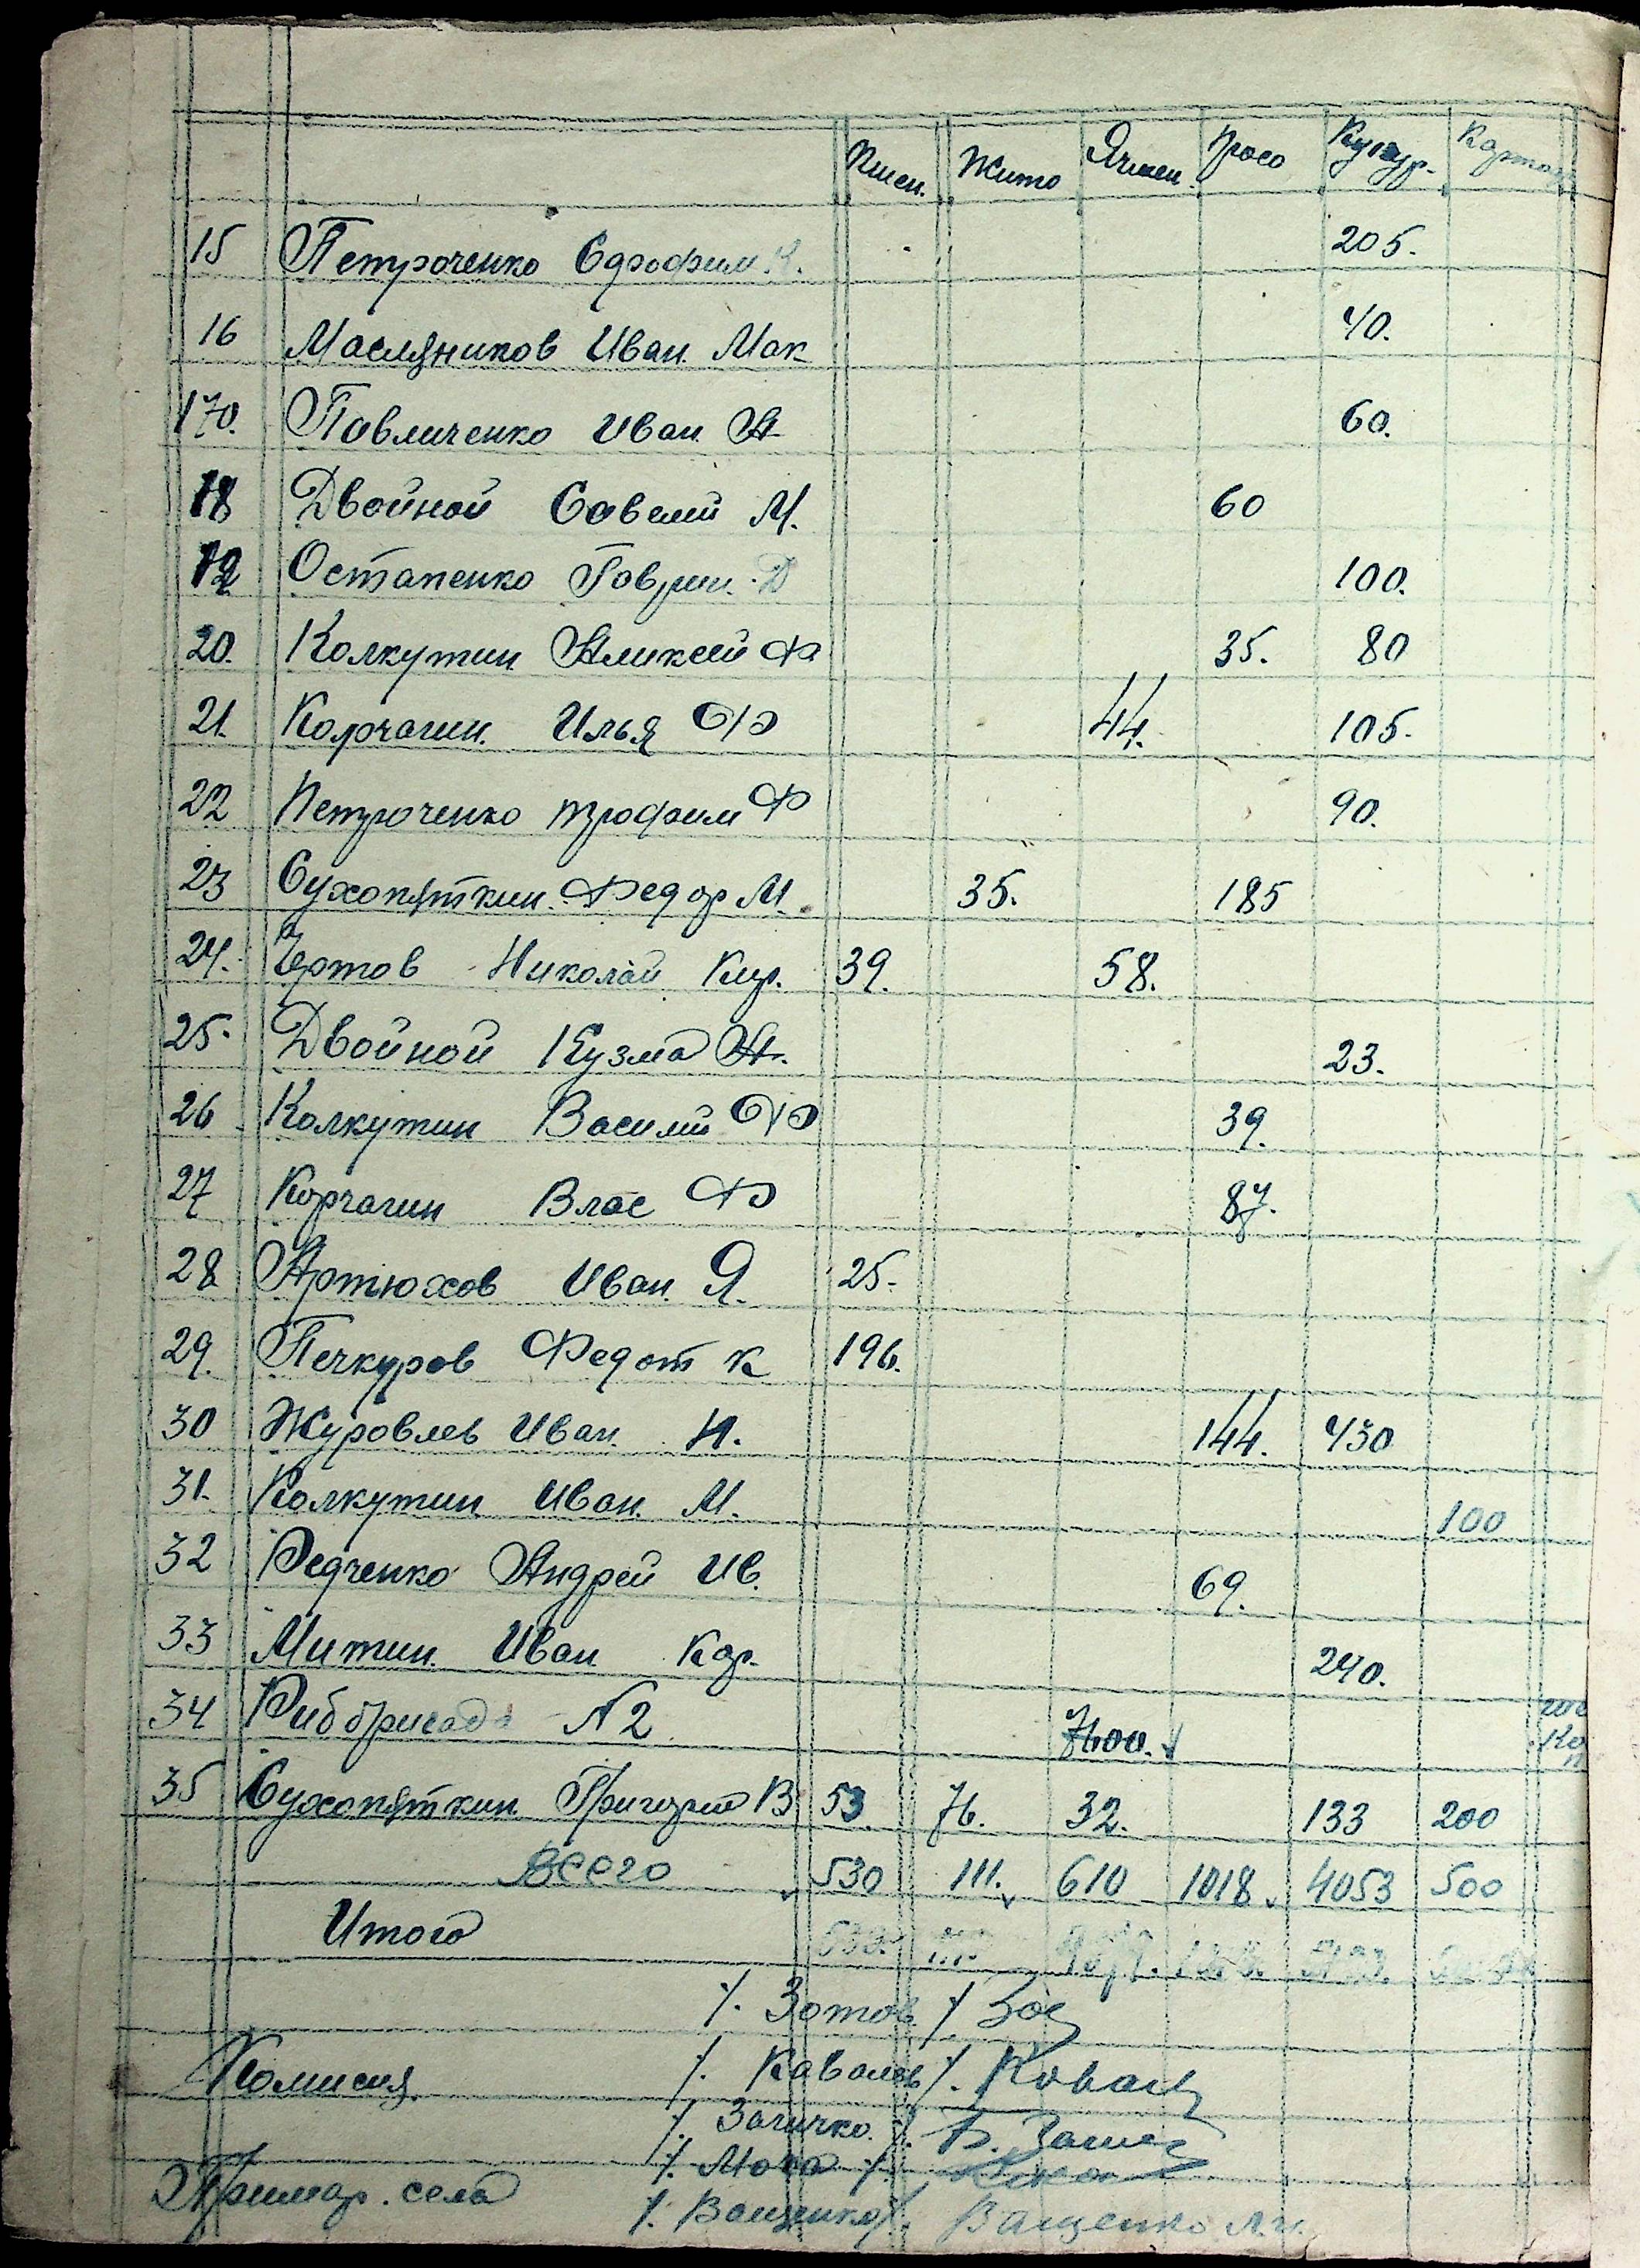 Пшен. Жито Ячмен. Просо Кукур. Картоф
15 Петроченко Ефрофим. 205.
16 Масляников Иван Мак 40.
170. Павличенко Иван А 60.
18 Двойной Савелий М. 60
19 Остапенко Гаврил. Д 100.
20. Колкутин Аликсей Ф 35. 80
21. Корчагин. Илья Ф 44. 105.
22 Петроченко трофим Ф 90.
23 Сухопяткин. Федор М. 35. 185
24. Чертов Николай Кир. 39. 58.
25. Двойной Кузма А. 23.
26 Колкутин Василий Ф 39.
27 Корчагин Влас Ф 87.
28 Артюхов Иван Я. 25.
29. Печкуров Федот К 196.
30 Журовлев Иван. И. 144. 430
31. Колкутин Иван. М. 100
32 Редченко Андрей Ив. 69.
33 Митин. Иван Кар. 240.
34 Риббригада N 2
35 Сухопяткин Григорий В 53. 76. 32. 133 200
Всего 530 111. 610 1018 4053 500
Итого
/. Зотов /
Комисия /. Каваль /.
/. Загичко. /.
/. Мока /.
Примар. села /. Ващенко /. Ващенко